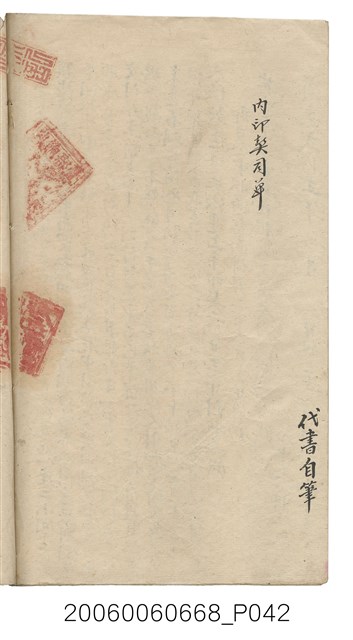 代書自筆
內印契司單
20060060668_P042